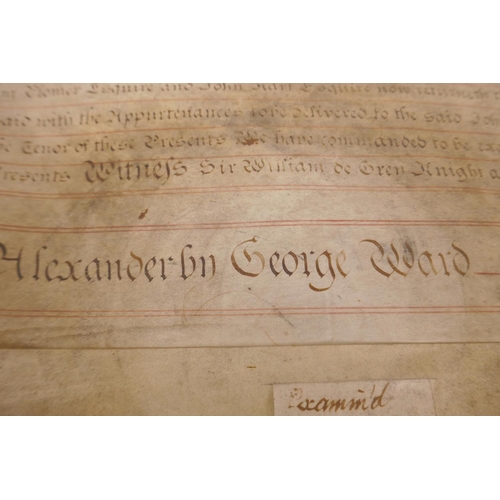 Esquire and John Hart Esquire now
with the Appurtenances to be delivered to the said Jo
Tenor of these Presents We have commanded to be ex
Presents Witness Sir William de Grey Knight a
Alexander by George Ward
Examin'd